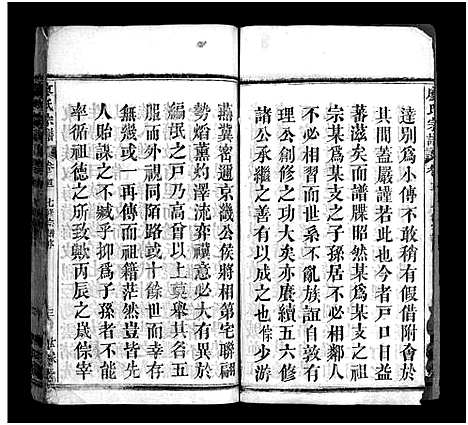 達別為小傳不敢稍有假借附會於
其間蓋嚴謹若此也今者戶口日益
蕃滋矣而譜牒昭然某為某支之祖
宗某為某支之子孫居不必相鄰人
不必相習而世系不亂族誼自敦有
理公創修之功大矣亦賡續五六修
諸公承繼之善有以成之也倧少游
燕冀密邇京畿公侯將相第宅聯翩
勢焰薰灼澤流弈禩意必大有異於
編氓之戶乃高曾以上莫舉其名五
服而外視同陌路或十餘世而幸存
無幾或一再傳而祖籍茫然豈皆先
人貽謀之不臧乎抑為子孫者不能
率循祖德之所致歟丙辰之歲倧宰
氏宗譜